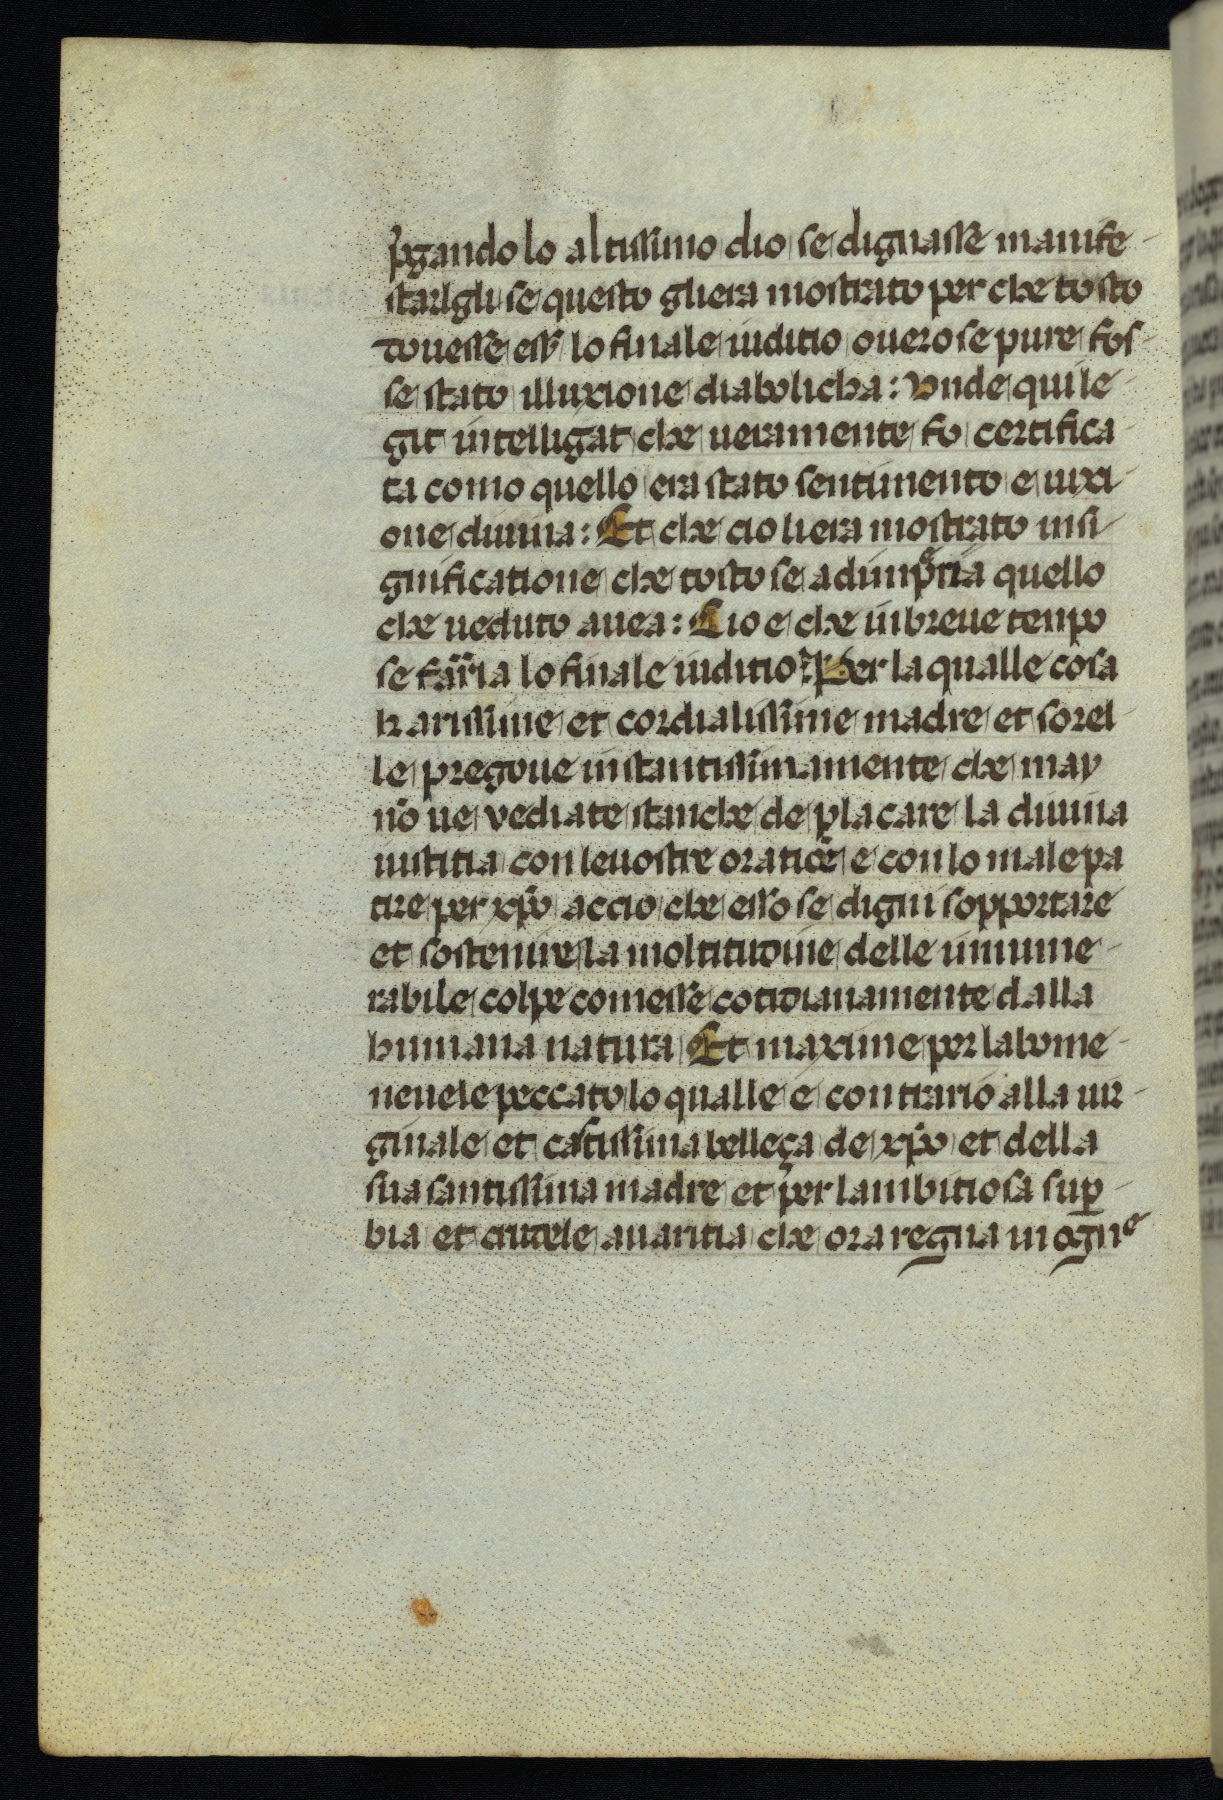 p̃gando lo altissimo dio se dignasse manife
starlgli se questo gliera mostrato per che tosto
douesse ess̃ lo finale iuditio ouero se pure fos
se stato illuxione diabolicha: Unde qui le
git intelligat che ueramente fo certifica
ta como quello era stato sentimento e uixi
one diuina: Et che cio liera mostrato insi
gnificatione che tosto se adimpiria quello
che ueduto auea: Cio e che in breue tempo
se faria lo finale iuditio: Per la qualle cosa
karissime et cordialissime madre et sorel
le pregoue instantissimamente che may
nõ ue vediate stanche de placare la diuina
iustitia con le uostre oratiõe e con lo male pa
tire per xp̃o accio che esso se digni sopportare
et sostenire la moltitudine delle innume
rabile colpe comesse cotidianamente dalla
humana natura Et maxime per labome
neuele peccato lo qualle e contrario alla uir
ginale et castissima belleça de xp̃o et della
sua santissima madre et per lambitiosa sup̱
bia et crudele auaritia che ora regna in ogne